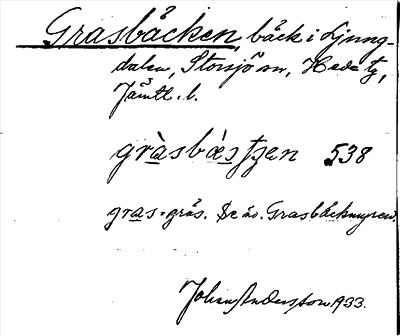 Grasbäcken, bäck i Ljung-
dalen, Storsjö sn, Hede tg,
Jämtl. l.
gràsbæ̀stʒen 538
gras = gräs. Se äv. Grasbäckmyren.
Johan Andersson 1933.